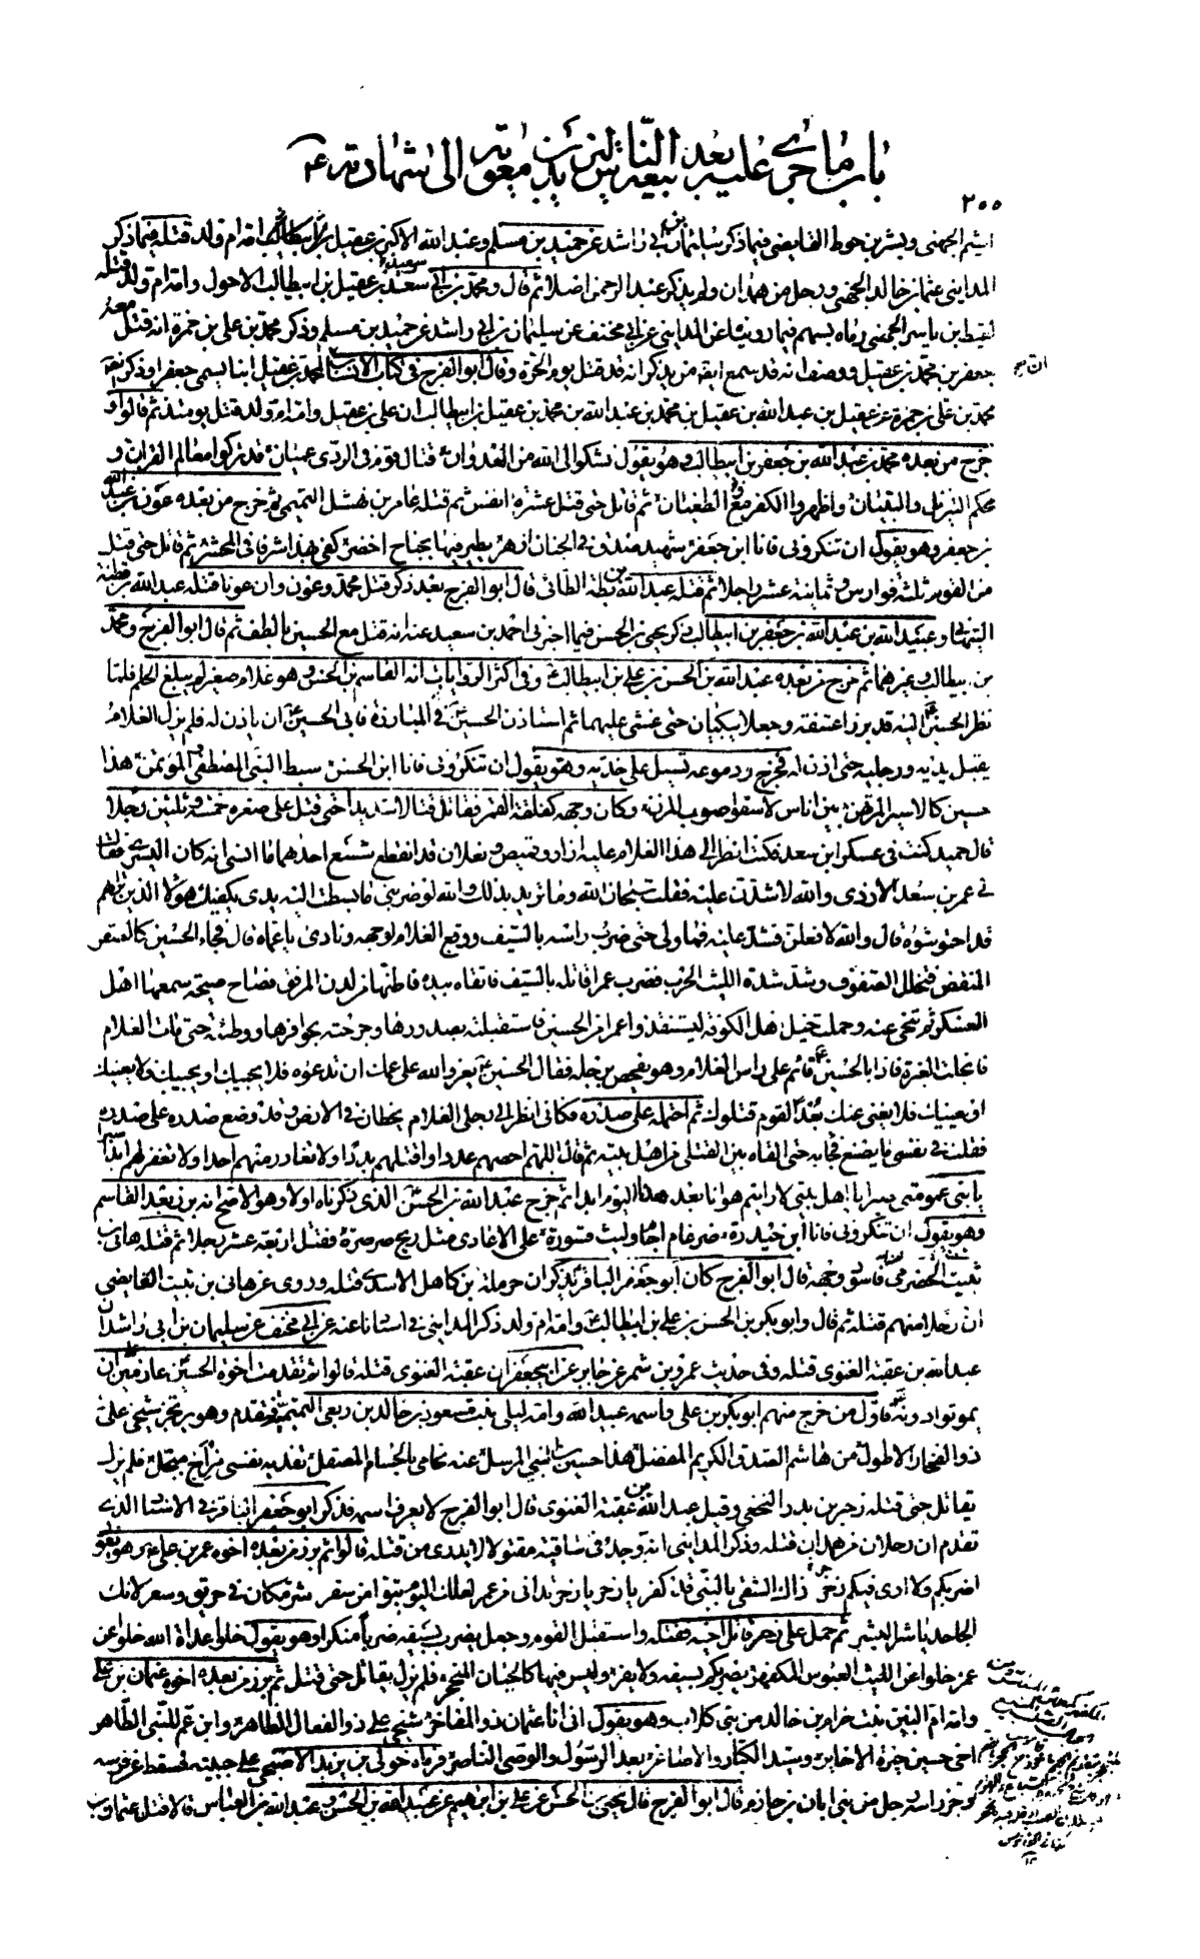 باب ما جرى عليه بعد بيعة الناس ليزيد بن معوية الى شهادته ع
٢٥٥
اشيم الجهنى وبشر بن حوط القايضى فيما ذكر سليمان بن ابي راشد عن حميد بن مسلم وعبد الله الاكبر بن عقيل بن ابيطالب امه ام ولد قتله فيما ذكر
المداينى عثمان بن خالد الجهنى ورجل من همدان ولم يذكر عبد الرحمن اصلا ثم قال ومحمد بن ابي سعيد بن عقيل بن ابيطالب الاحول وامه ام ولد قتله
لقيط بن ياسر الجهنى رماه بسهم فيما رويناه عن المداينى عن ابي مخنف عن سليمان بن ابي راشد عن حميد بن مسلم وذكر محمد بن على بن حمزة انه قتل معه
جعفر بن محمد بن عقيل ووصف انه قد سمع ايضا من يذكر انه قد قتل يوم الحرة وقال ابو الفرج فى كتاب الانساب لمحمد بن عقيل ابنا يسمى جعفرا وذكر ايضا
محمد بن على بن حمزة عن عقيل بن عبد الله بن عقيل بن محمد بن عبد الله بن محمد بن عقيل بن ابيطالب ان على بن عقيل وامه ام ولد قتل يومئذ ثم قالوا و
خرج من بعده محمد بن عبد الله بن جعفر بن ابيطالب وهو يقول نشكو الى الله من العدوان قتال قوم فى الردى عميان قد تركوا معالم القران و
محكم التنزيل والتبيان واظهروا الكفر مع الطغيان ثم قاتل حتى قتل عشرة انفس ثم قتله عامر بن نهشل التميمى ثم خرج من بعده عون بن عبد الله
بن جعفر وهو يقول ان تنكرونى فانا ابن جعفر شهيد صدق فى الجنان ازهر يطير فيها بجناح اخضر كفى بهذا شرفا فى المحشر ثم قاتل حتى قتل
من القوم ثلثة فوارس وثمانية عشر راجلا ثم قتله عبد الله بن بطة الطائى قال ابو الفرج بعد ذكر قتل محمد وعون وان عونا قتله عبد الله بن قطنة
التيهانى وعبيد الله بن عبد الله بن جعفر بن ابيطالب ذكر يحيى بن الحسن فيما اخبرنى احمد بن سعيد عنه انه قتل مع الحسين بالطف ثم قال ابو الفرج ومحمد
بن ابيطالب وغيرهما ثم خرج من بعده عبد الله بن الحسن بن على بن ابيطالب وفى اكثر الروايات انه القاسم بن الحسن وهو غلام صغير لم يبلغ الحلم فلما
نظر الحسين ع اليه قد برز اعتنقه وجعلا يبكيان حتى غشى عليهما ثم استاذن الحسين ع فى المبارزة فابى الحسين ع ان ياذن له فلم يزل الغلام
يقبل يديه ورجليه حتى اذن له فخرج ودموعه تسيل على خديه وهو يقول ان تنكرونى فانا ابن الحسن سبط النبى المصطفى المؤتمن هذا
حسين كالاسير المرتهن بين اناس لاسقوا صوب المزن وكان وجهه كفلقة القمر فقاتل قتالا شديدا حتى قتل على صغره خمسة وثلثين رجلا
قال حميد كنت فى عسكر ابن سعد فكنت انظر الى هذا الغلام عليه ازار وقميص ونعلان قد انقطع شسع احدهما ما انسى انه كان اليسرى فقال
لى عمر بن سعد الازدى والله لاشدن عليه فقلت سبحان الله وما تريد بذلك والله لو ضربنى ما بسطت اليه يدى يكفيك هؤلاء الذين تراهم
قد احتوشوه قال والله لافعلن فشد عليه فما ولى حتى ضرب راسه بالسيف ووقع الغلام لوجهه ونادى يا عماه قال فجاء الحسين كالصقر
المنقض فتخلل الصفوف وشد شدة الليث الحرب فضرب عمرا قاتله بالسيف فاتقاه بيده فاطنها من لدن المرفق فصاح صيحة سمعها اهل
العسكر ثم تنحى عنه وحملت خيل اهل الكوفة ليستنقذوا عمرا من الحسين فاستقبلته بصدورها وجرحته بحوافرها ووطئته حتى مات الغلام
فانجلت الغبرة فاذا بالحسين ع قائم على راس الغلام وهو يفحص برجله فقال الحسين ع يعز والله على عمك ان تدعوه فلا يجيبك او يجيبك ولا يعينك
او يعينك فلا يغنى عنك بعدا لقوم قتلوك ثم احتمله على صدره فكانى انظر الى رجلى الغلام يخطان فى الارض وقد وضع صدره على صدره
فقلت فى نفسى ما يصنع فجاء به حتى القاه بين القتلى من اهل بيته ثم قال اللهم احصهم عددا واقتلهم بددا ولا تغادر منهم احدا ولا تغفر لهم ابدا
يا بنى عمومتى صبرا يا اهل بيتى لا رايتم هوانا بعد هذا اليوم ابدا ثم خرج عبد الله بن الحسن الذى ذكرناه اولا وهو الاصح انه برز بعد القاسم
وهو يقول ان تنكرونى فانا ابن حيدرة ضرغام اجام وليث قسورة على الاعادى مثل ريح صرصرة فقتل اربعة عشر رجلا ثم قتله هانى بن
ثبيت الحضرمى فاسود وجهه قال ابو الفرج كان ابو جعفر الباقر يذكر ان حرملة بن كاهل الاسدى قتله وروى عن هانى بن ثبيت القايضى
ان رجلا منهم قتله ثم قال وابو بكر بن الحسن بن على بن ابيطالب وامه ام ولد ذكر المداينى فى اسنادنا عنه عن ابي مخنف عن سليمان بن ابى راشد ان
عبد الله بن عقبة الغنوى قتله وفى حديث عمرو بن شمر عن جابر عن ابيجعفر ان عقبة الغنوى قتله قالوا ثم تقدمت اخوة الحسين عازمين على ان
يموتوا دونه فاول من خرج منهم ابو بكر بن على واسمه عبيد الله وامه ليلى بنت مسعود بن خالد بن ربعى التميمية فتقدم وهو يرتجز شيخى على
ذو الفخار الاطول من هاشم الصدق الكريم المفضل هذا حسين بن النبى المرسل عنه نحامى بالحسام المصقل تفديه نفسى من اخ مبجل فلم يزل
يقاتل حتى قتله زجر بن بدر النخعى وقيل عبد الله بن عقبة الغنوى قال ابو الفرج لا يعرف اسمه فذكر ابو جعفر الباقر فى الاسناد الذى
تقدم ان رجلا من همدان قتله وذكر المداينى انه وجد فى ساقية مقتولا لا يدرى من قتله قالوا ثم برز من بعده اخوه عمر بن على وهو يقول
اضربكم ولا ارى فيكم زحر ذاك الشقى بالنبى قد كفر يا زحر يا زحر تدانى من عمر لعلك اليوم تبوا من سقر شر مكان فى حريق وسعر لانك
الجاحد يا شر البشر ثم حمل على زحر قاتل اخيه فقتله واستقبل القوم وجعل يضرب بسيفه ضربا منكرا وهو يقول خلوا عداة الله خلوا عن
عمر خلوا عن الليث العبوس المكفهر يضربكم بسيفه ولا يفر وليس فيها كالجبان المنجحر فلم يزل يقاتل حتى قتل ثم برز من بعده اخوه عثمان بن على
وامه ام البنين بنت حزام بن خالد من بنى كلاب وهو يقول انى انا عثمان ذو المفاخر شيخى على ذو الفعال الظاهر وابن عم للنبى الطاهر
اخى حسين خيرة الاخاير وسيد الكبار والاصاغر بعد الرسول والوصى الناصر فرماه خولى بن يزيد الاصبحى على جبينه فسقط عن فرسه
وجز راسه رجل من بنى ابان بن حازم قال ابو الفرج قال يحيى بن الحسن عن على بن ابراهيم عن عبيد الله بن الحسن وعبد الله بن العباس قالا قتل عثمان بن